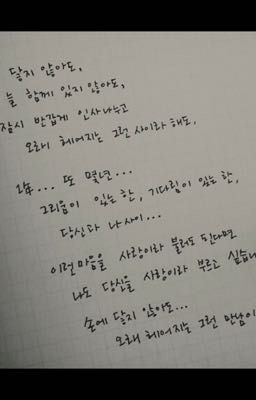 닿지 않아도,
늘 함께 있지 않아도,
잠시 반갑게 인사나누고
오래 헤어지는 그런 사이라 해도,
또 몇년...
그리움이 있는 한, 기다림이 있는 한,
당신과 나 사이...
이런 마음을 사랑이라 불러도 된다면
나도 당신을 사랑이라 부르고 싶습니
손에 닿지 않아도...
오래 헤어지는 그런 만남이